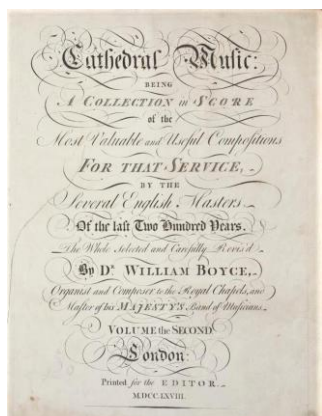 Cathedral Music:
BEING
A COLLECTION in SCORE
of the
Most Valuable and Useful Compositions
FOR THAT SERVICE,
BY THE
Several English Masters
Of the last Two Hundred Years.
The Whole Selected and Carefully Revis'd
By Dr. WILLIAM BOYCE,
Organist and Composer to the Royal Chapels, and
Master of his MAJESTY'S Band of Musicians.
VOLUME the SECOND
London:
Printed for the EDITOR.
M.DCC.LXVIII.